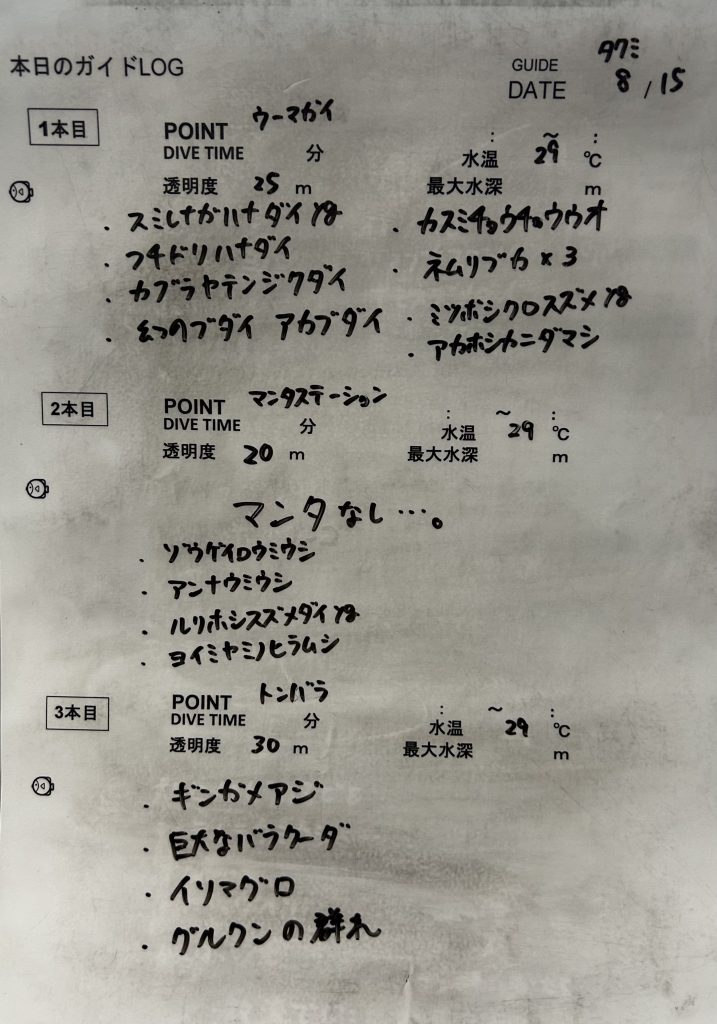 本日のガイドLOG
GUIDE タクミ
DATE 8/15
1本目
POINT ウーマガイ
DIVE TIME 分 : ~ :
水温 29 ℃
透明度 25 m 最大水深 m
・スミレナガハナダイyg
・フチドリハナダイ
・カブラヤテンジクダイ
・幻のブダイ アカブダイ
・カスミチョウチョウウオ
・ネムリブカ×3
・ミツボシクロスズメyg
・アカホシカニダマシ
2本目
POINT マンタステーション
DIVE TIME 分 : ~ :
水温 29 ℃
透明度 20 m 最大水深 m
マンタなし…。
・ゾウゲイロウミウシ
・アンナウミウシ
・ルリホシスズメダイyg
・ヨイミヤミノヒラムシ
3本目
POINT トンバラ
DIVE TIME 分 : ~ :
水温 29 ℃
透明度 30 m 最大水深 m
・ギンガメアジ
・巨大なバラクーダ
・イソマグロ
・グルクンの群れ